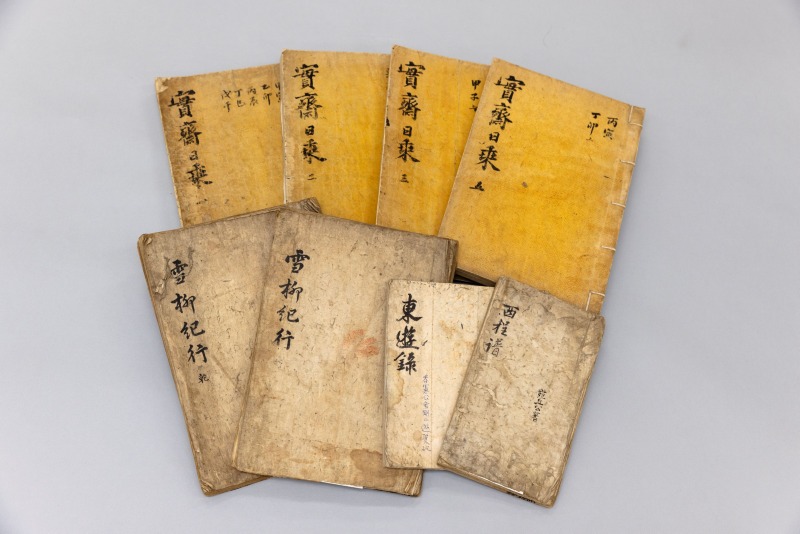 實齋日乘 一
乙卯
丙辰
丁巳
戊午
實齋日乘 二
實齋日乘 三
實齋日乘 五
丙寅
丁卯
雪柳紀行 乾
雪柳紀行
東遊錄
西程譜